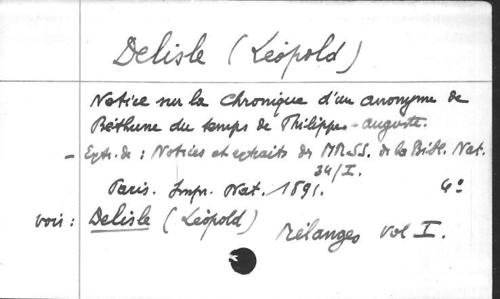 Delisle (Léopold)
Notice sur la Chronique d'un anonyme de
Béthune du temps de Philippe-auguste.
- Extr. de : Notices et extraits des MRSS. de la Bibl. Nat.
34/I.
Paris. Impr. Nat. 1891. 4°
voir : Delisle (Léopold)
Mélanges vol I.